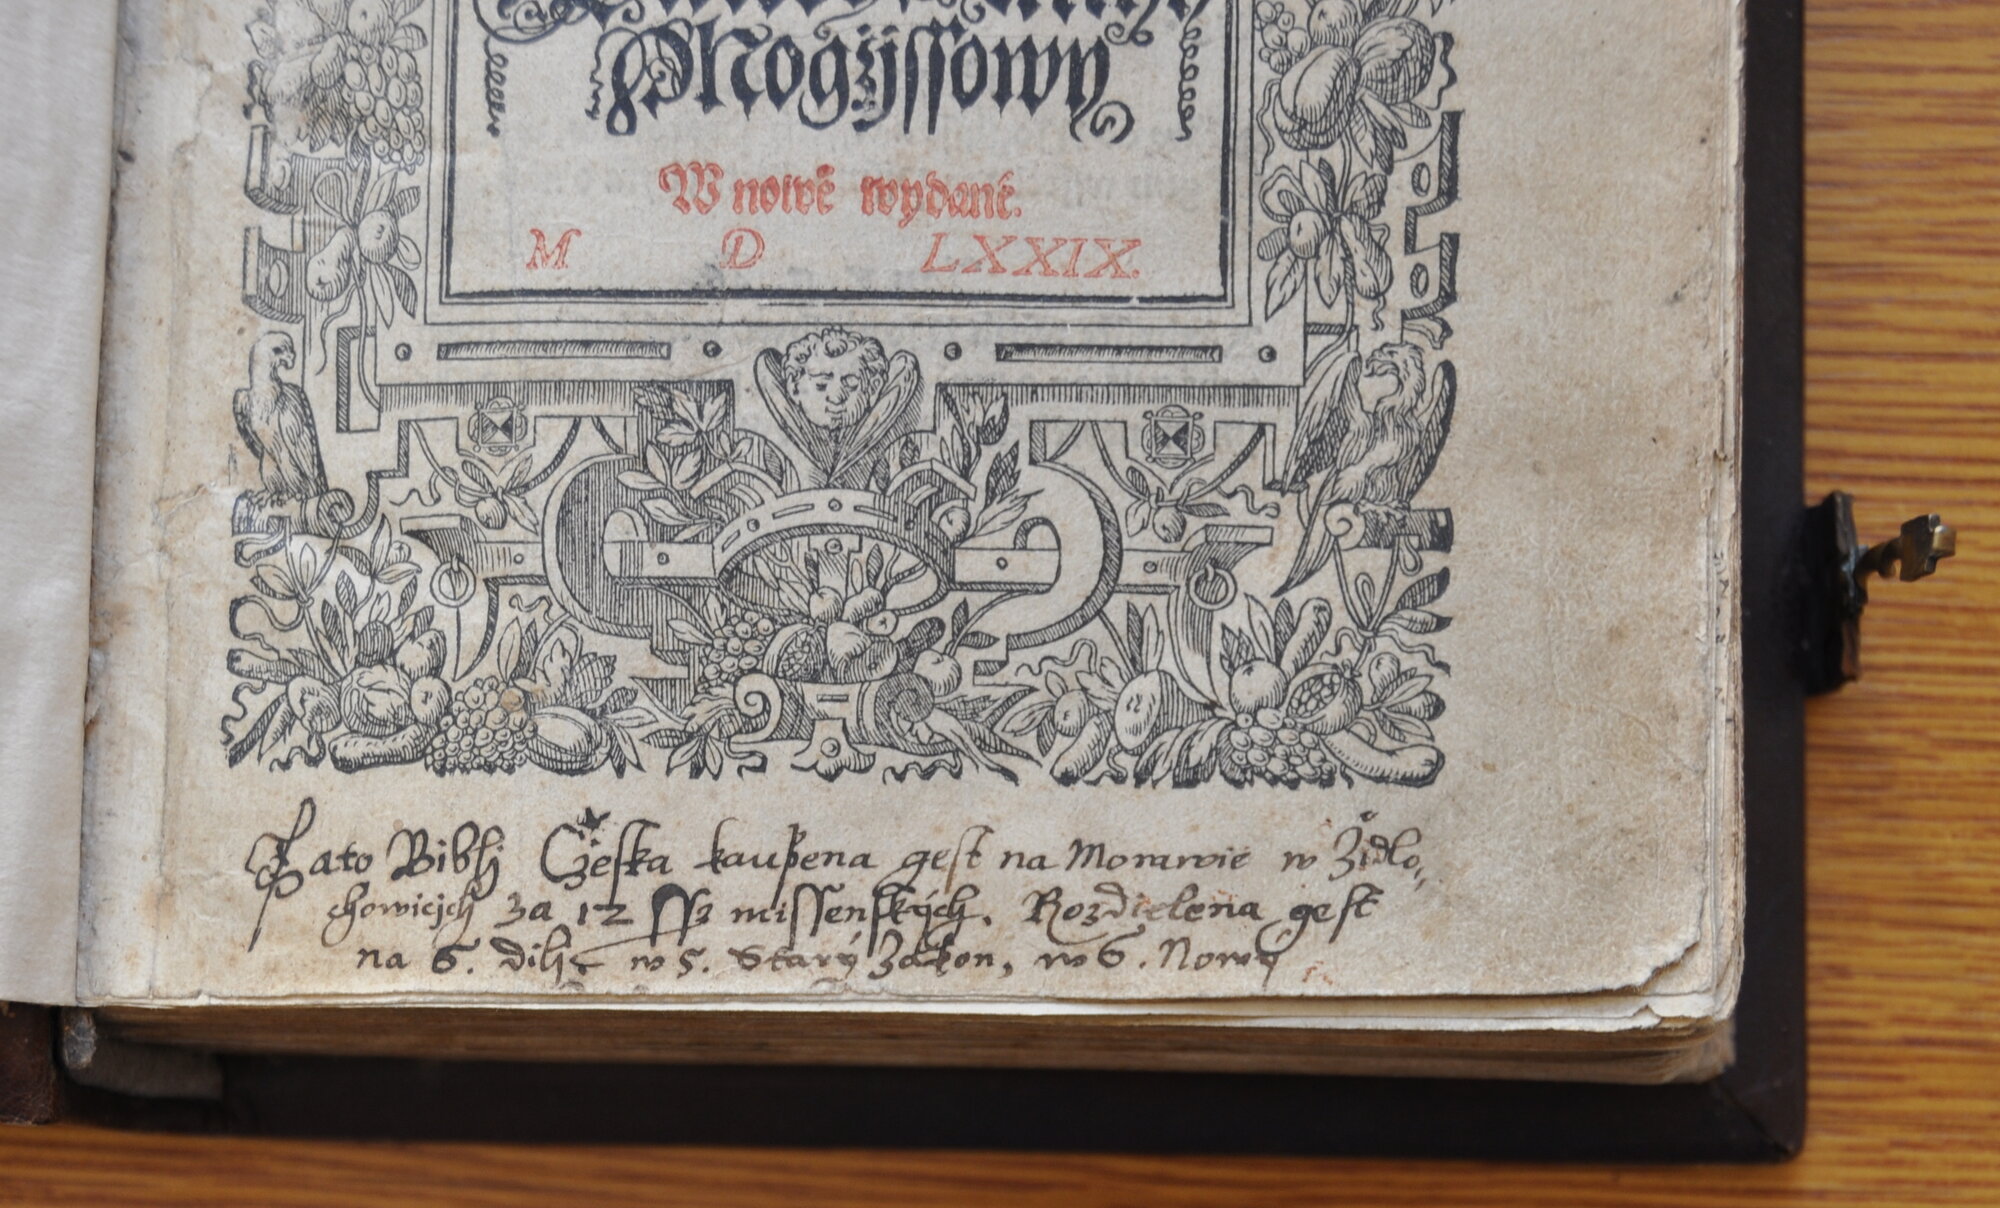 Mogžjssowy
W nowě wydané.
M D LXXIX.
Tato Biblj Czeska kaupena gest na Morawie w Židlo,,
chowicých za 12 ſſ missenských. Rozdielena gest
na 6. dilů w 5. Starý Zákon, w 6. Nowý